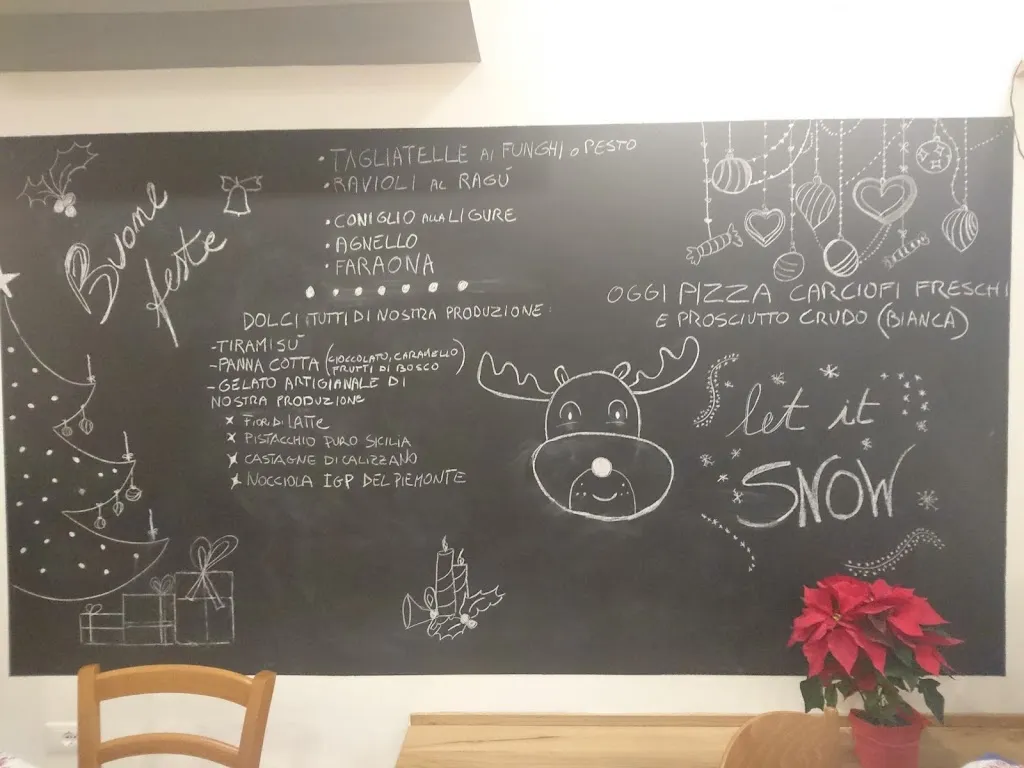 Buone
feste
• TAGLIATELLE AI FUNGHI o PESTO
• RAVIOLI AL RAGÚ
• CONIGLIO ALLA LIGURE
• AGNELLO
• FARAONA
DOLCI (TUTTI DI NOSTRA PRODUZIONE:
- TIRAMISÚ
- PANNA COTTA (CIOCCOLATO, CARAMELLO
FRUTTI DI BOSCO)
- GELATO ARTIGIANALE DI
NOSTRA PRODUZIONE
x FIOR DI LATTE
x PISTACCHIO PURO SICILIA
x CASTAGNE DI CALIZZANO
x NOCCIOLA IGP DEL PIEMONTE
OGGI PIZZA CARCIOFI FRESCHI
E PROSCIUTTO CRUDO (BIANCA)
let it
SNOW